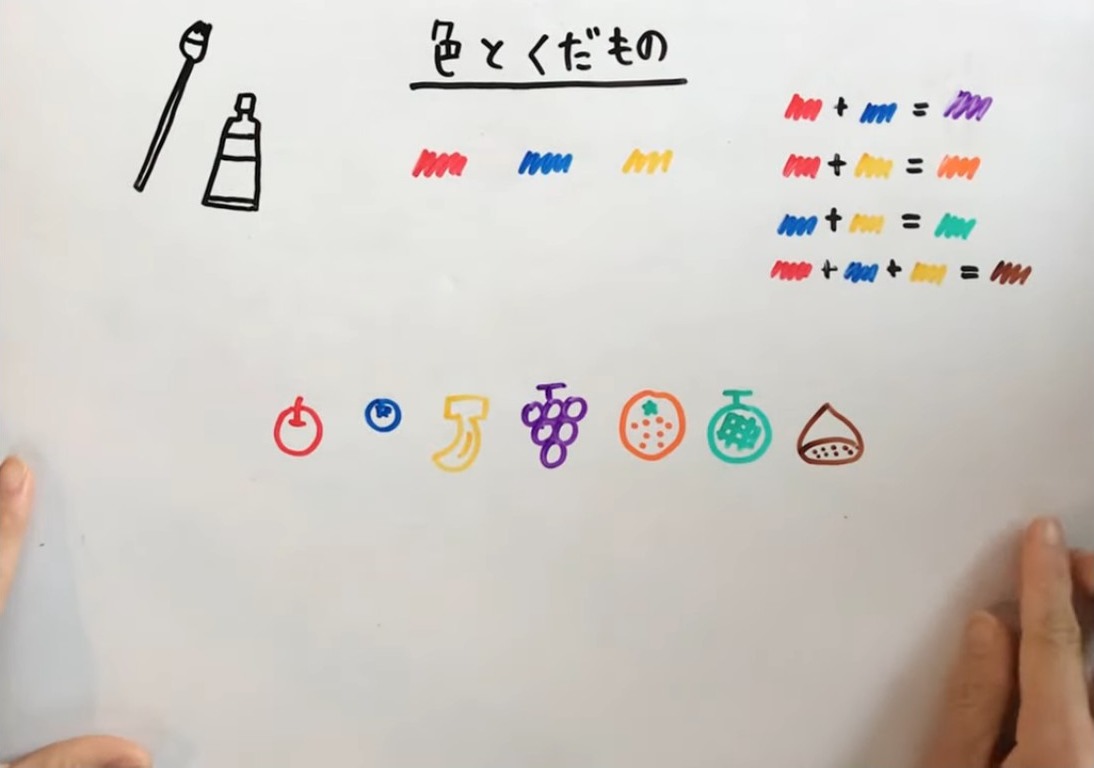 色とくだもの
+ =
+ =
+ =
+ + =